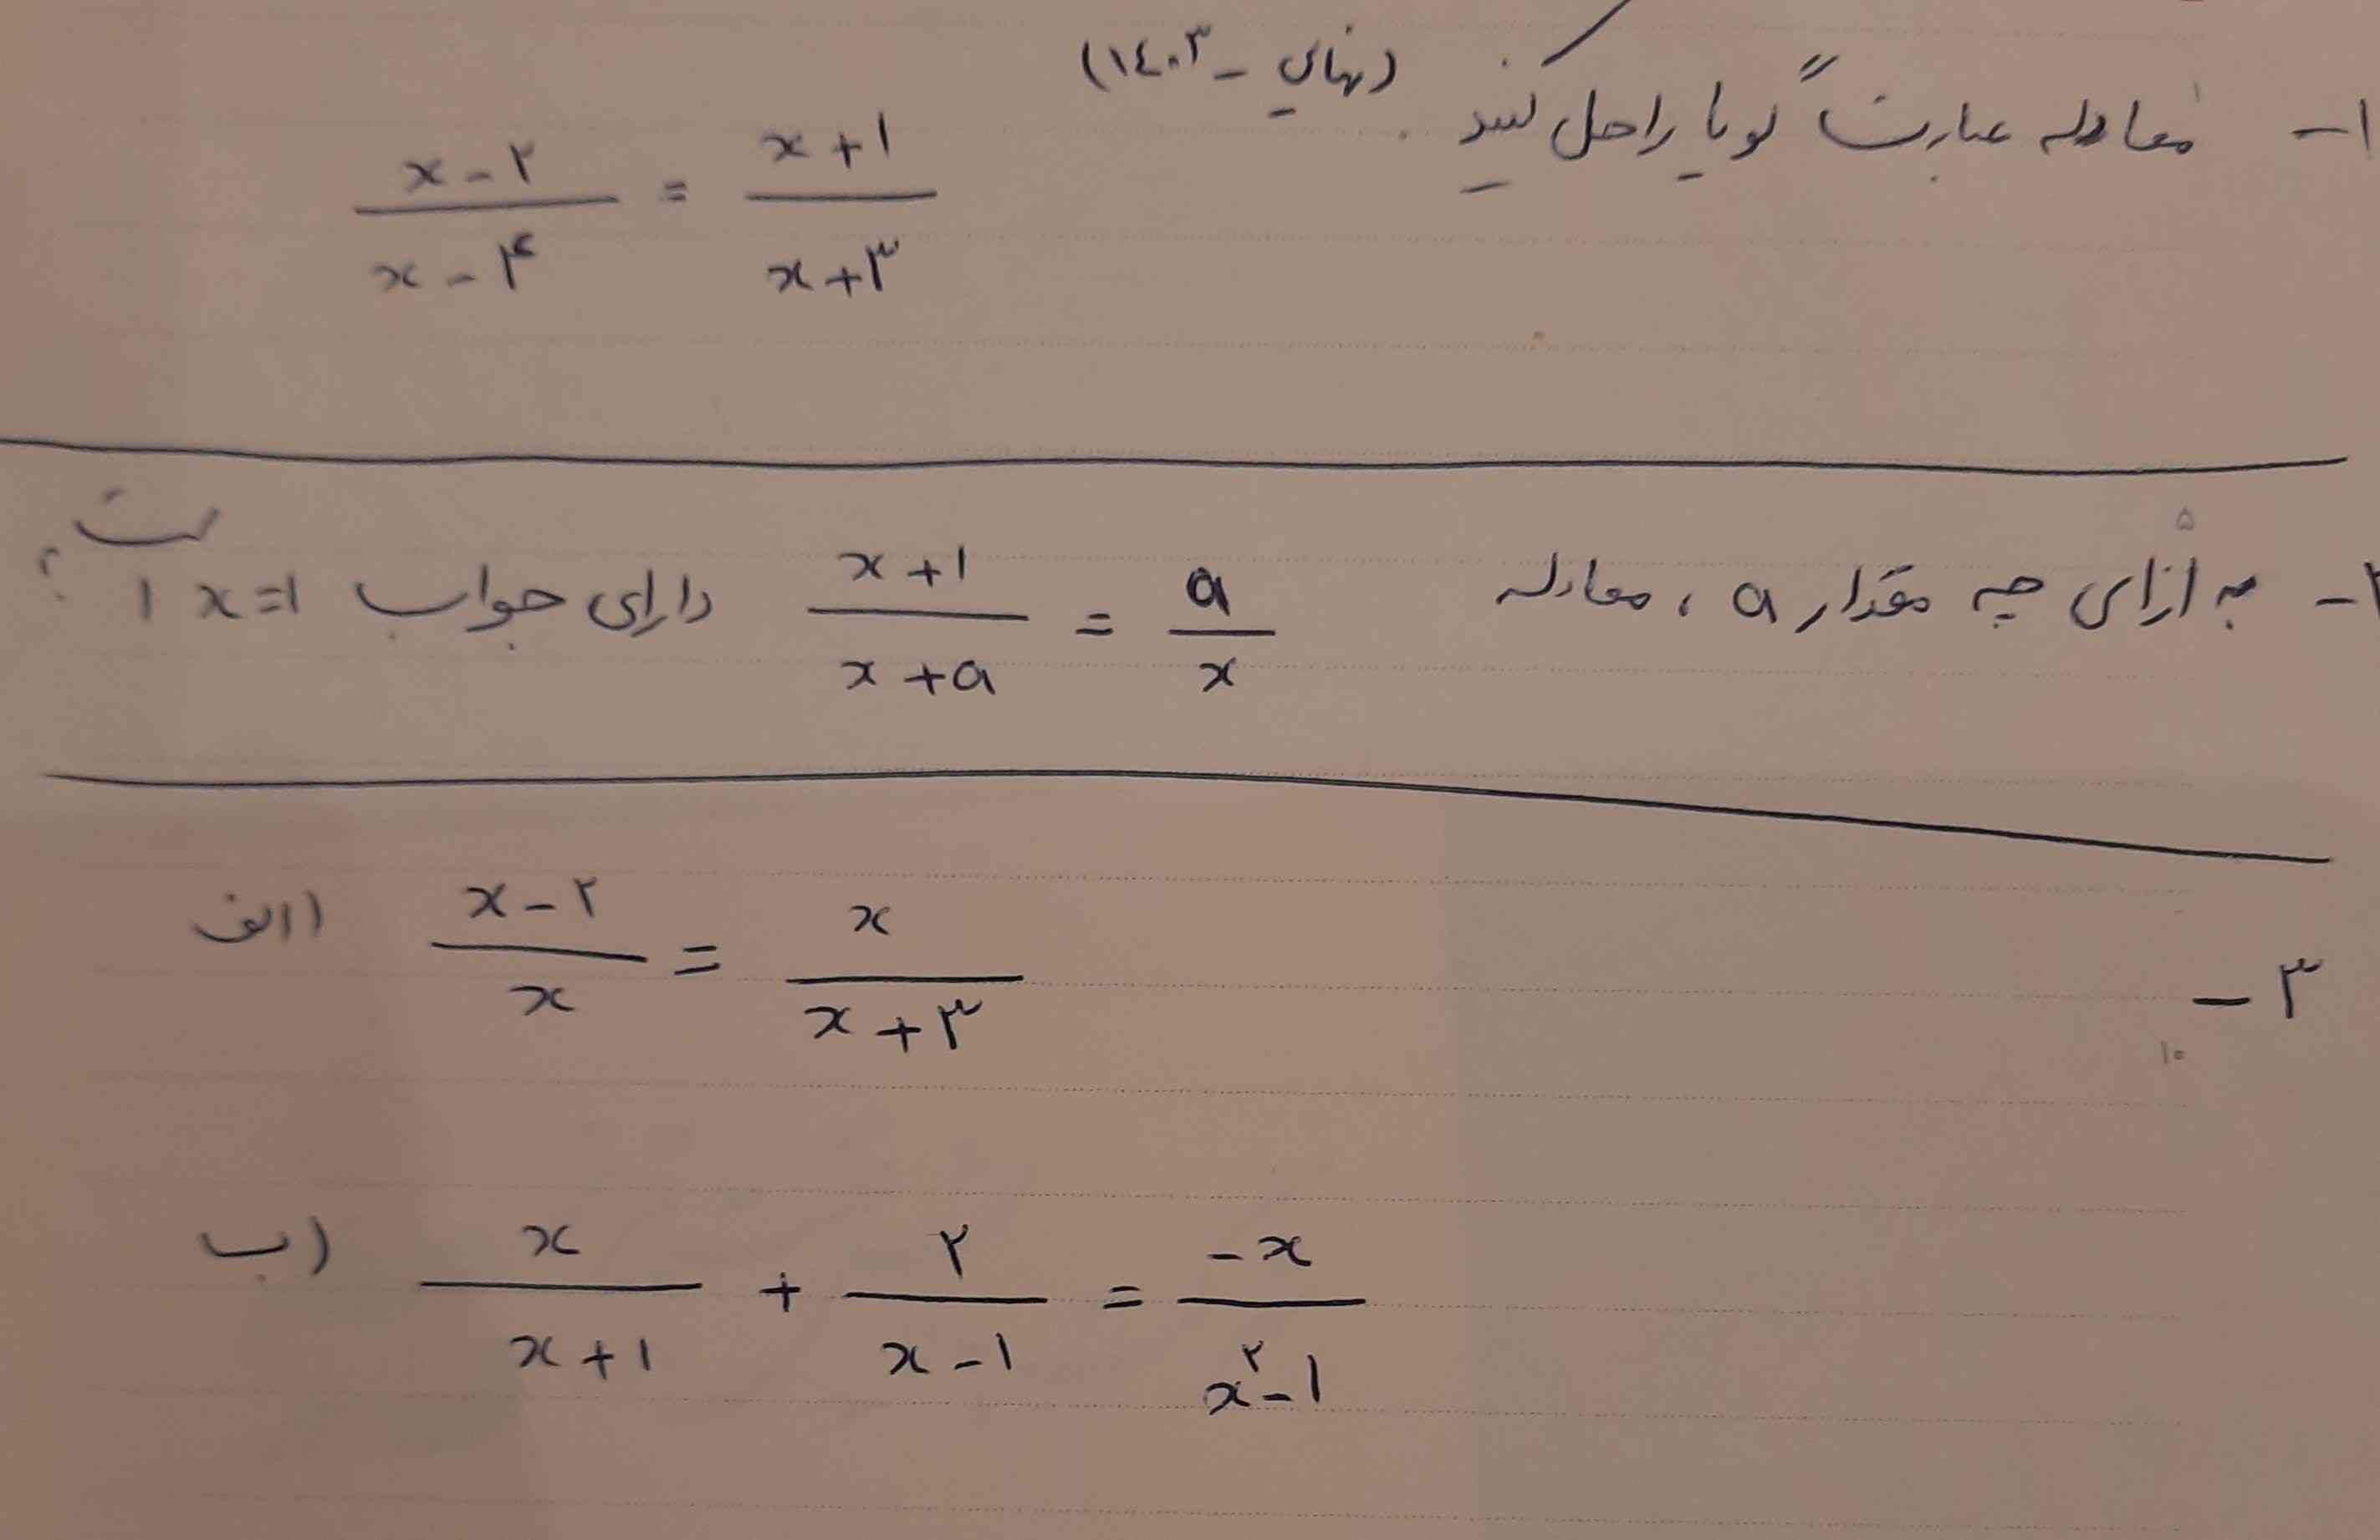 ۱- معادله عبارت گویا را حل کنید. (نهایی - ۱۴۰۳)
x-۲ / x-۴ = x+۱ / x+۳
۲- به ازای چه مقدار a، معادله x+۱ / x+a = a / x دارای جواب x=۱ است؟
۵
۳-
الف) x-۲ / x = x / x+۳
۱۰
ب) x / x+۱ + ۲ / x-۱ = -x / x²-۱